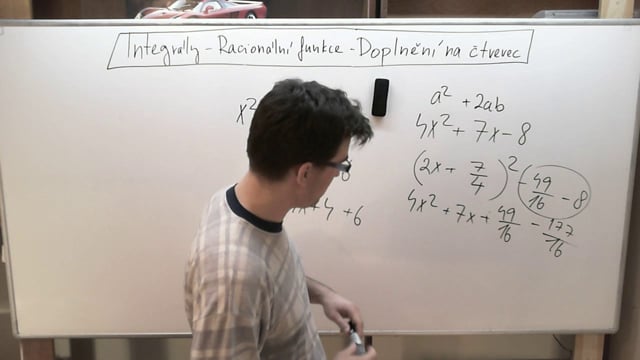 Integrály - Racionální funkce - Doplnění na čtverec
x²
a² + 2ab
4x² + 7x - 8
(2x + 7/4)² - 49/16 - 8
4x² + 7x + 49/16 - 177/16
+4 +6